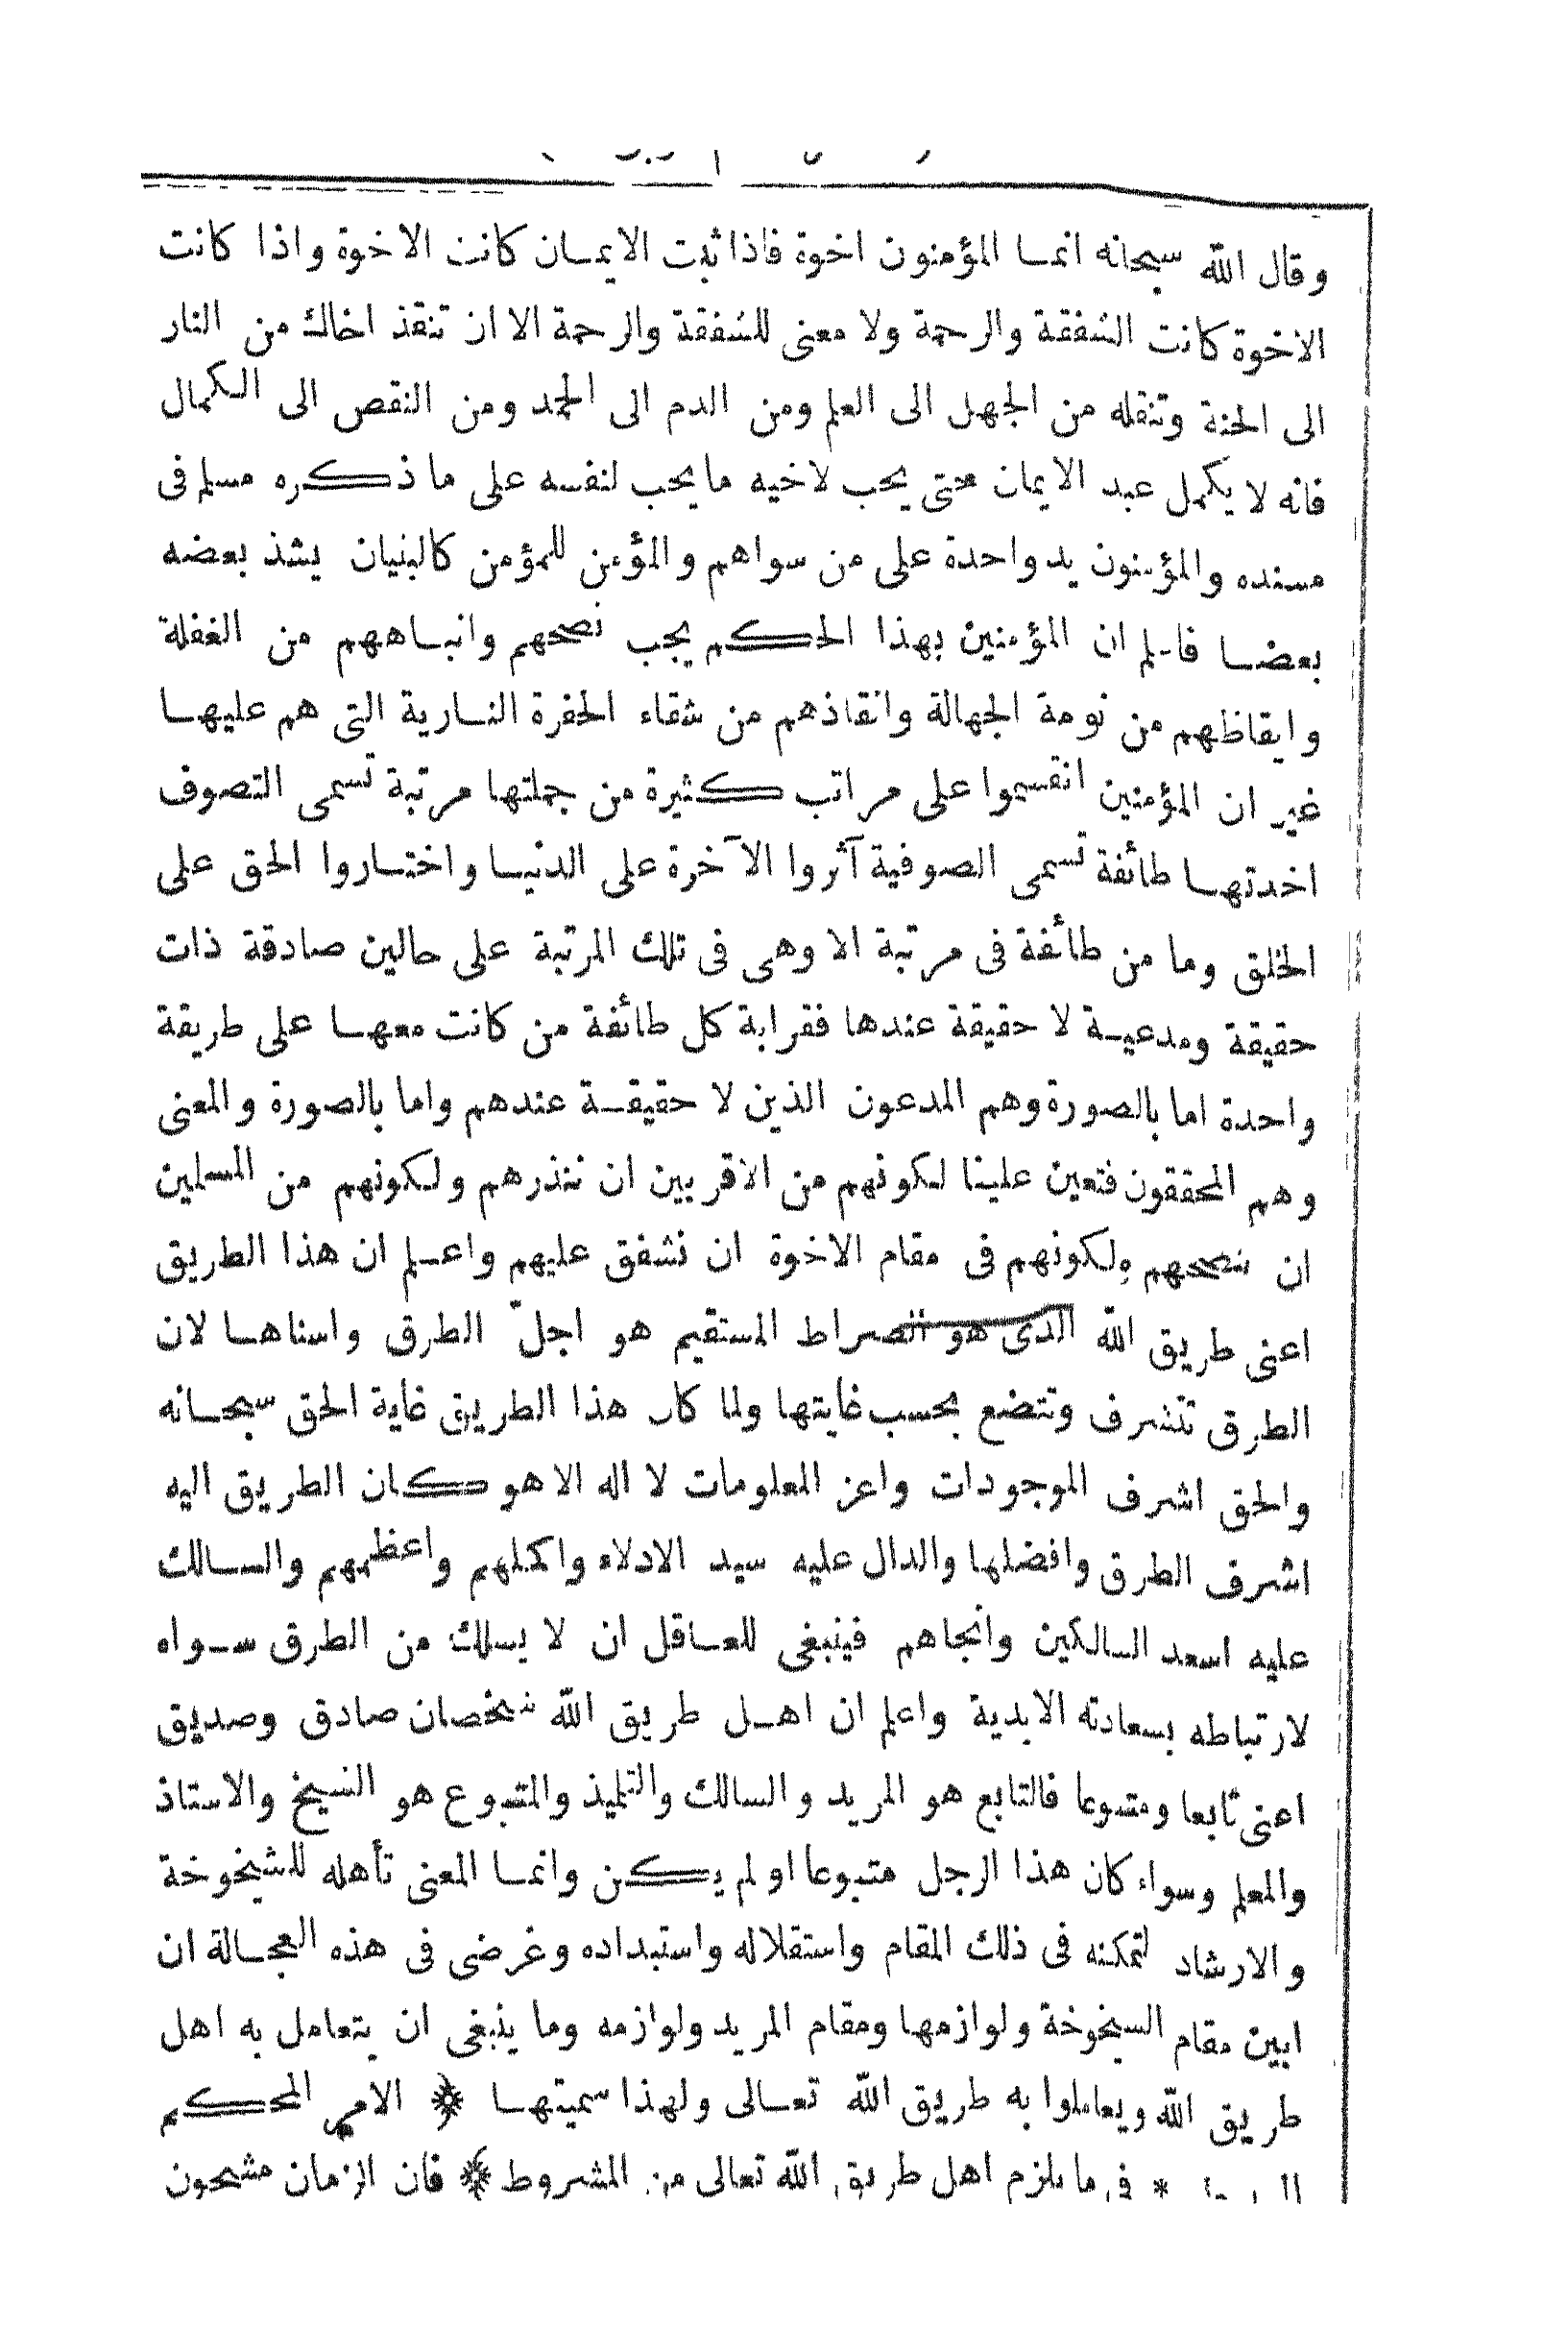 وقال الله سبحانه انمـا المؤمنون اخوة فاذا ثبت الايمـان كانت الاخوة واذا كانت
الاخوة كانت الشفقة والرحمة ولا معنى للشفقة والرحمة الا ان تنقذ اخاك من النار
الى الجنة وتنقله من الجهل الى العلم ومن الذم الى الحمد ومن النقص الى الكمال
فانه لا يكمل عبد الايمان حتى يحب لاخيه ما يحب لنفسه على ما ذكره مسلم فى
مسنده والمؤمنون يد واحدة على من سواهم والمؤمن للمؤمن كالبنيان يشد بعضه
بعضـا فاعلم ان المؤمنين بهذا الحكم يجب نصحهم وانبـاههم من الغفلة
وايقاظهم من نومة الجهالة وانقاذهم من شقاء الحفرة النـارية التى هم عليهـا
غير ان المؤمنين انقسموا على مراتب كثيرة من جملتها مرتبة تسمى التصوف
اخذتهـا طائفة تسمى الصوفية آثروا الآخرة على الدنيـا واختـاروا الحق على
الخلق وما من طائفة فى مرتبة الا وهى فى تلك المرتبة على حالين صادقة ذات
حقيقة ومدعيـة لا حقيقة عندها فقرابة كل طائفة من كانت معهـا على طريقة
واحدة اما بالصورة وهم المدعون الذين لا حقيقـة عندهم واما بالصورة والمعنى
وهم المحققون فتعين علينا لكونهم من الاقربين ان ننذرهم ولكونهم من المسلمين
ان ننصحهم ولكونهم فى مقام الاخوة ان نشفق عليهم واعـلم ان هذا الطريق
اعنى طريق الله الذى هو الصراط المستقيم هو اجلّ الطرق واسناهـا لان
الطرق تتشرف وتتضع بحسب غايتها ولما كان هذا الطريق غاية الحق سبحـانه
والحق اشرف الموجودات واعز المعلومات لا اله الا هو كان الطريق اليه
اشرف الطرق وافضلها والدال عليه سيد الادلاء واكملهم واعظمهم والسـالك
عليه اسعد السالكين وانجاهم فينبغى للعـاقل ان لا يسلك من الطرق سـواه
لارتباطه بسعادته الابدية واعلم ان اهـل طريق الله شخصان صادق وصديق
اعنى تابعا ومتبوعا فالتابع هو المريد والسالك والتلميذ والمتبوع هو الشيخ والاستاذ
والمعلم وسواء كان هذا الرجل متبوعا او لم يكن وانمـا المعنى تأهله للشيخوخة
والارشاد لتمكنه فى ذلك المقام واستقلاله واستبداده وغرضى فى هذه العجـالة ان
ابين مقام الشيخوخة ولوازمها ومقام المريد ولوازمه وما ينبغى ان يتعامل به اهل
طريق الله ويعاملوا به طريق الله تعـالى ولهذا سميتهـا ﴿ الامر المحكم
* فى ما يلزم اهل طريق الله تعالى من المشروط ﴾ فان الزمان مشحون